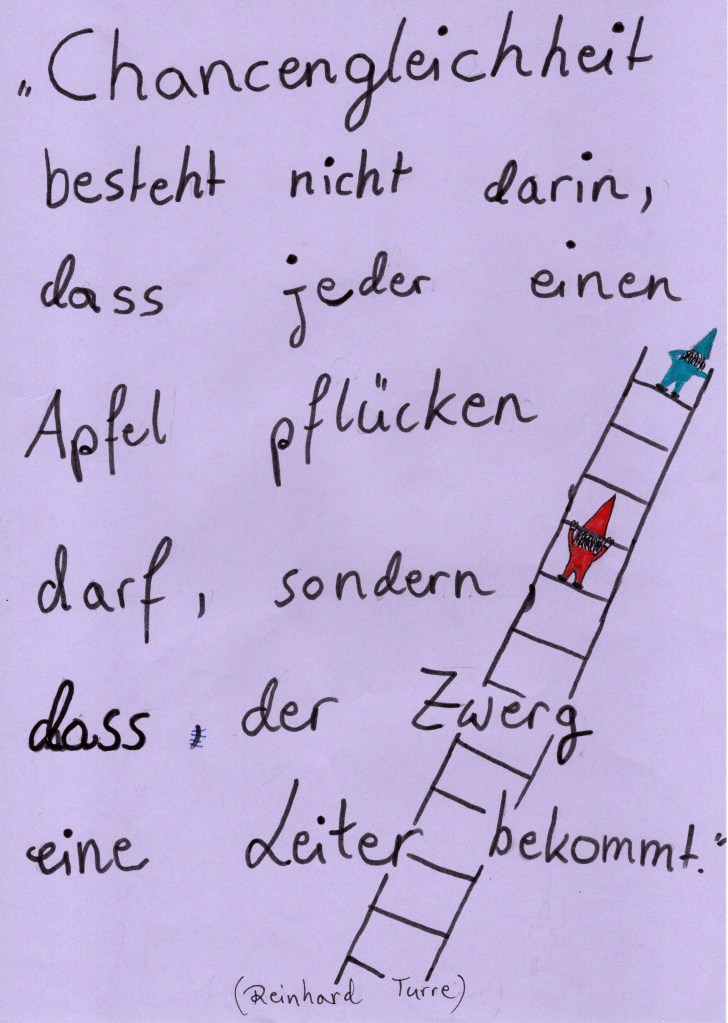 „Chancengleichheit
besteht nicht darin,
dass jeder einen
Apfel pflücken
darf, sondern
dass, der Zwerg
eine Leiter bekommt."
(Reinhard Turre)